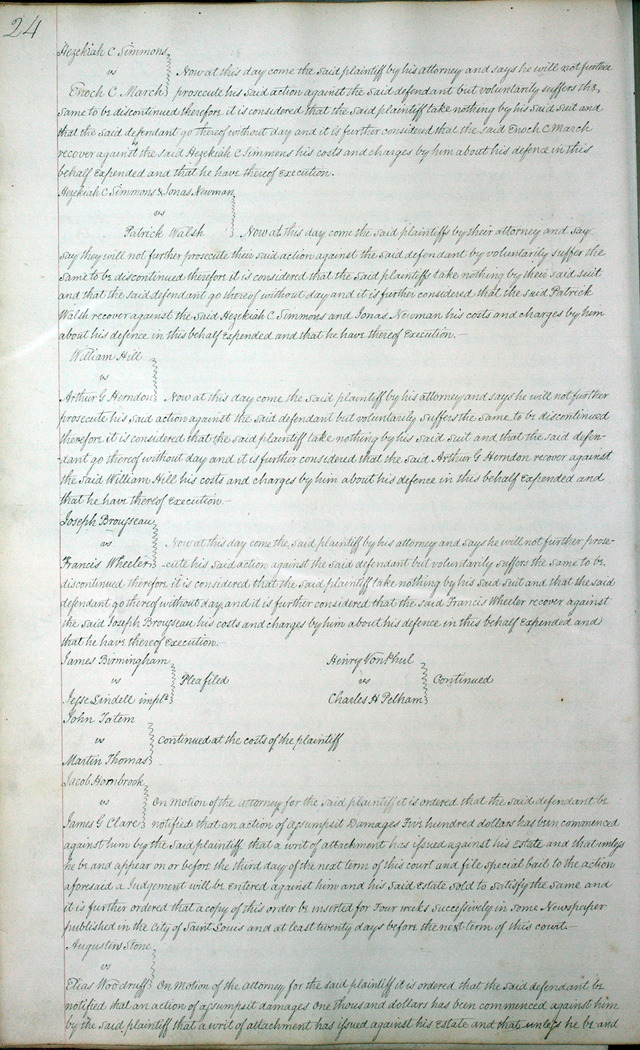 24
Hezekiah C Simmons
vs Now at this day come the said plaintiff by his attorney and says he will not further
Enoch C March prosecute his said action against the said defendant but voluntarily suffers the
same to be discontinued therefore it is considered that the said plaintiff take nothing by his said suit and
that the said defendant go thereof without day and it is further considered that the said Enoch C March
recover against the said Hezekiah C Simmons his costs and charges by him about his defence in this
behalf expended and that he have thereof execution.
Hezekiah C Simmons & Jonas Newman
vs
Patrick Walsh Now at this day come the said plaintiffs by their attorney and say
say they will not further prosecute their said action against the said defendant by voluntarily suffer the
same to be discontinued therefore it is considered that the said plaintiffs take nothing by their said suit
and that the said defendant go thereof without day and it is further considered that the said Patrick
Walsh recover against the said Hezekiah C Simmons and Jonas Newman his costs and charges by him
about his defence in this behalf expended and that he have thereof execution.—
William Hill
vs
Arthur G Herndon Now at this day come the said plaintiff by his attorney and says he will not further
prosecute his said action against the said defendant but voluntarily suffers the same to be discontinued
therefore it is considered that the said plaintiff take nothing by his said suit and that the said defen-
-dant go thereof without day and it is further considered that the said Arthur G Herndon recover against
the said William Hill his costs and charges by him about his defence in this behalf expended and
that he have thereof execution—
Joseph Brousseau
vs Now at this day come the said plaintiff by his attorney and says he will not further prose-
Francis Wheeler -cute his said action against the said defendant but voluntarily suffers the same to be
discontinued therefore it is considered that the said plaintiff take nothing by his said suit and that the said
defendant go thereof without day, and it is further considered that the said Francis Wheeler recover against
the said Joseph Brousseau his costs and charges by him about his defence in this behalf expended and
that he have thereof execution.—
James Birmingham Henry Von Phul
vs Plea filed vs Continued
Jesse Lindell impl.d Charles H Pelham
John Tatem
vs Continued at the costs of the plaintiff
Martin Thomas
Jacob Hornbrook
vs On motion of the attorney for the said plaintiff it is ordered that the said defendant be
James G Clare notified that an action of assumpsit Damages Five hundred dollars has been commenced
against him by the said plaintiff that a writ of attachment has issued against his estate and that unless
he be and appear on or before the third day of the next term of this court and file special bail to the action
aforesaid a Judgement will be entered against him and his said estate sold to satisfy the same and
it is further ordered that a copy of this order be inserted for Four weeks successively in some Newspaper
published in the city of Saint Louis and at least twenty days before the next term of this court—
Augustin Stone
vs
Elias Woodruff On motion of the attorney for the said plaintiff it is ordered that the said defendant be
notified that an action of assumpsit damages one thousand dollars has been commenced against him
by the said plaintiff that a writ of attachment has issued against his estate and that unless he be and